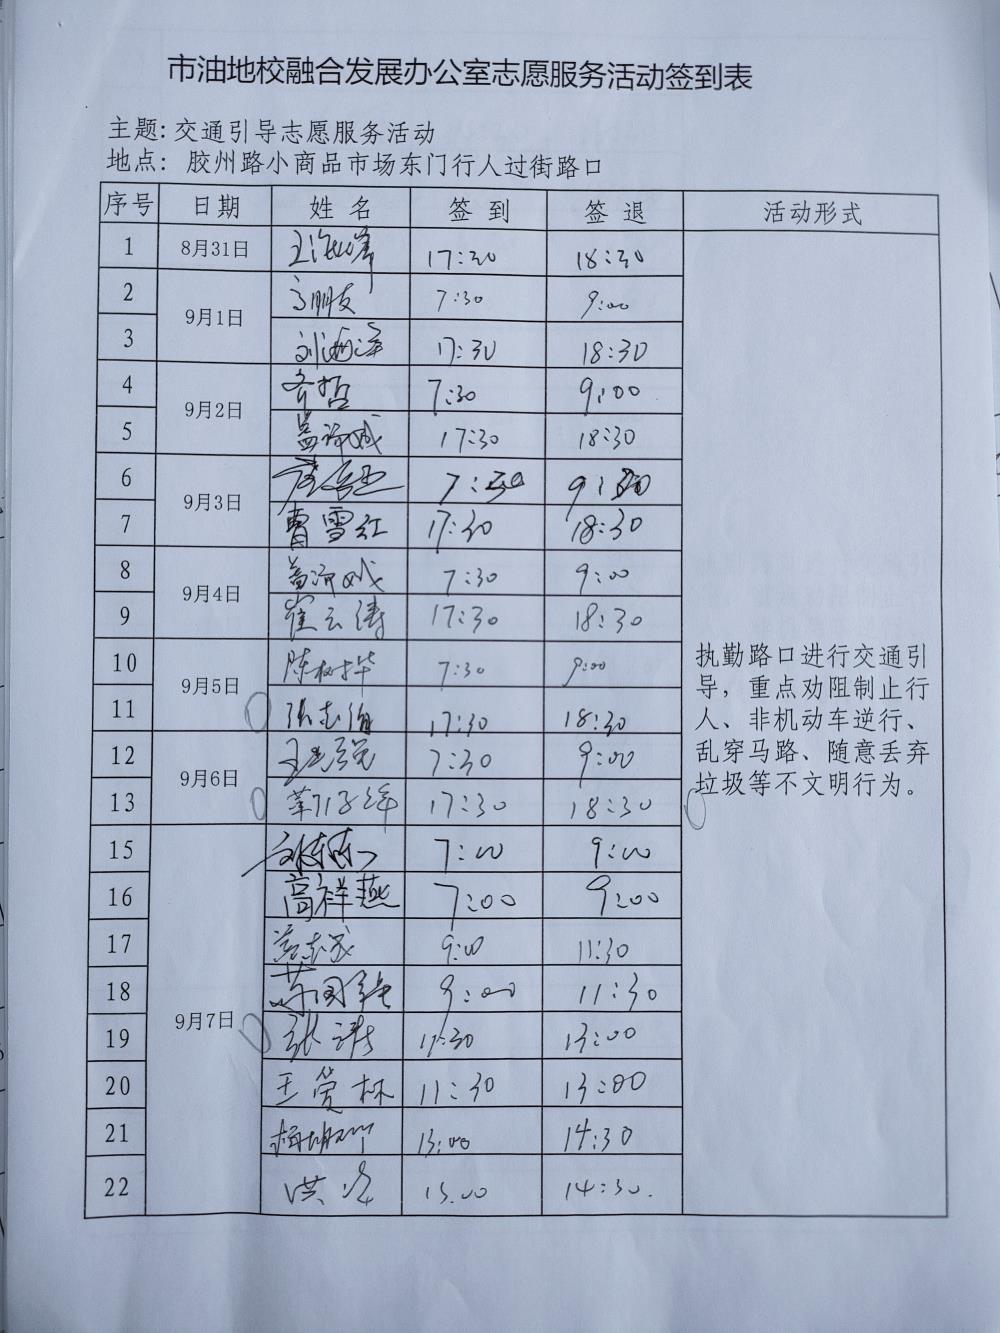 市油地校融合发展办公室志愿服务活动签到表
主题：交通引导志愿服务活动
地点： 胶州路小商品市场东门行人过街路口
序号 日期 姓名 签到 签退 活动形式
1 8月31日 17:30 18:30
2 9月1日 7:30 9:00
3 17:30 18:30
4 9月2日 齐哲 7:30 9:00
5 17:30 18:30
6 9月3日 7:30
7 曹雪红 17:30 18:30
8 9月4日 7:30 9:00
9 崔云涛 17:30 18:30
10 9月5日 7:30 9:00
11 17:30 18:30
12 9月6日 7:30 9:00
13 17:30 18:30
15 9月7日 7:00 9:00
16 高祥燕 7:00 9:00
17 9:00 11:30
18 9:00 11:30
19 11:30 13:00
20 11:30 13:00
21 13:00 14:30
22 13:00 14:30.
执勤路口进行交通引
导，重点劝阻制止行
人、非机动车逆行、
乱穿马路、随意丢弃
垃圾等不文明行为。